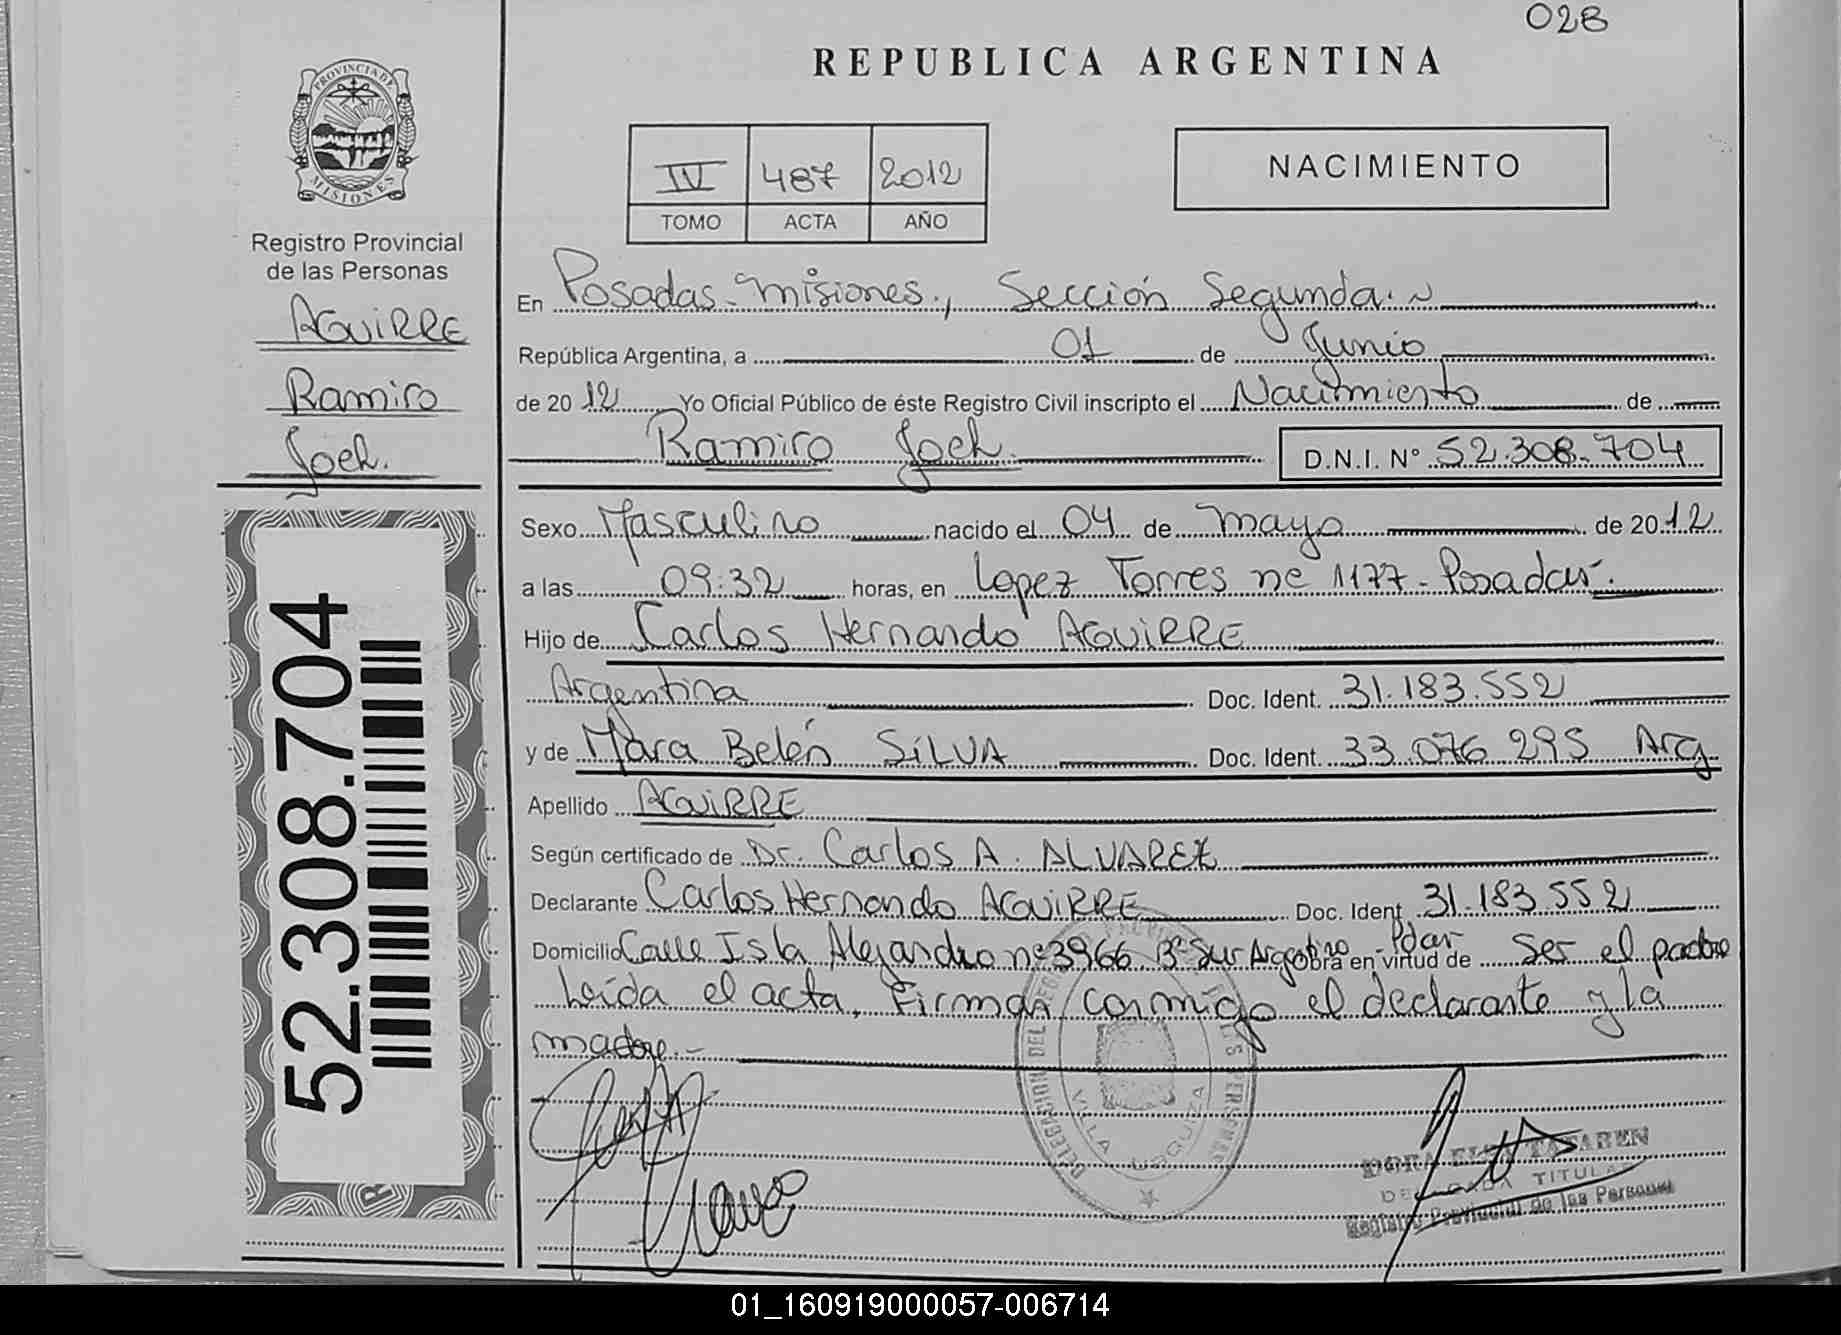 028
REPUBLICA ARGENTINA
PROVINCIA DE
MISIONES
Registro Provincial
de las Personas
AGUIRRE
Ramiro
Joel.
52.308.704
IV 487 2012
TOMO ACTA AÑO
NACIMIENTO
En Posadas - Misiones., Sección Segunda.
República Argentina, a 01 de Junio
de 20 12 Yo Oficial Público de éste Registro Civil inscripto el Nacimiento de
Ramiro Joel. D.N.I. Nº 52.308.704
Sexo Masculino nacido el 04 de mayo de 2012
a las 09:32 horas, en Lopez Torres nº 1177 - Posadas.
Hijo de Carlos Hernando AGUIRRE
Argentina Doc. Ident. 31.183.552
y de Mara Belén SILVA Doc. Ident. 33.076.295 Arg.
Apellido AGUIRRE
Según certificado de Dr. Carlos A. ALVAREZ
Declarante Carlos Hernando AGUIRRE Doc. Ident. 31.183.552
Domicilio Calle Isla Alejandro nº 3966 Bº Sur Argentino - Pdas Obra en virtud de Ser el padre
Leída el acta, Firman conmigo el declarante y la
madre.-
DELEGACION DEL REGISTRO PROVINCIAL DE LAS PERSONAS
VILLA URQUIZA
DORA TABAREN
DELEGADA TITULAR
Registro Provincial de las Personas
01_160919000057-006714